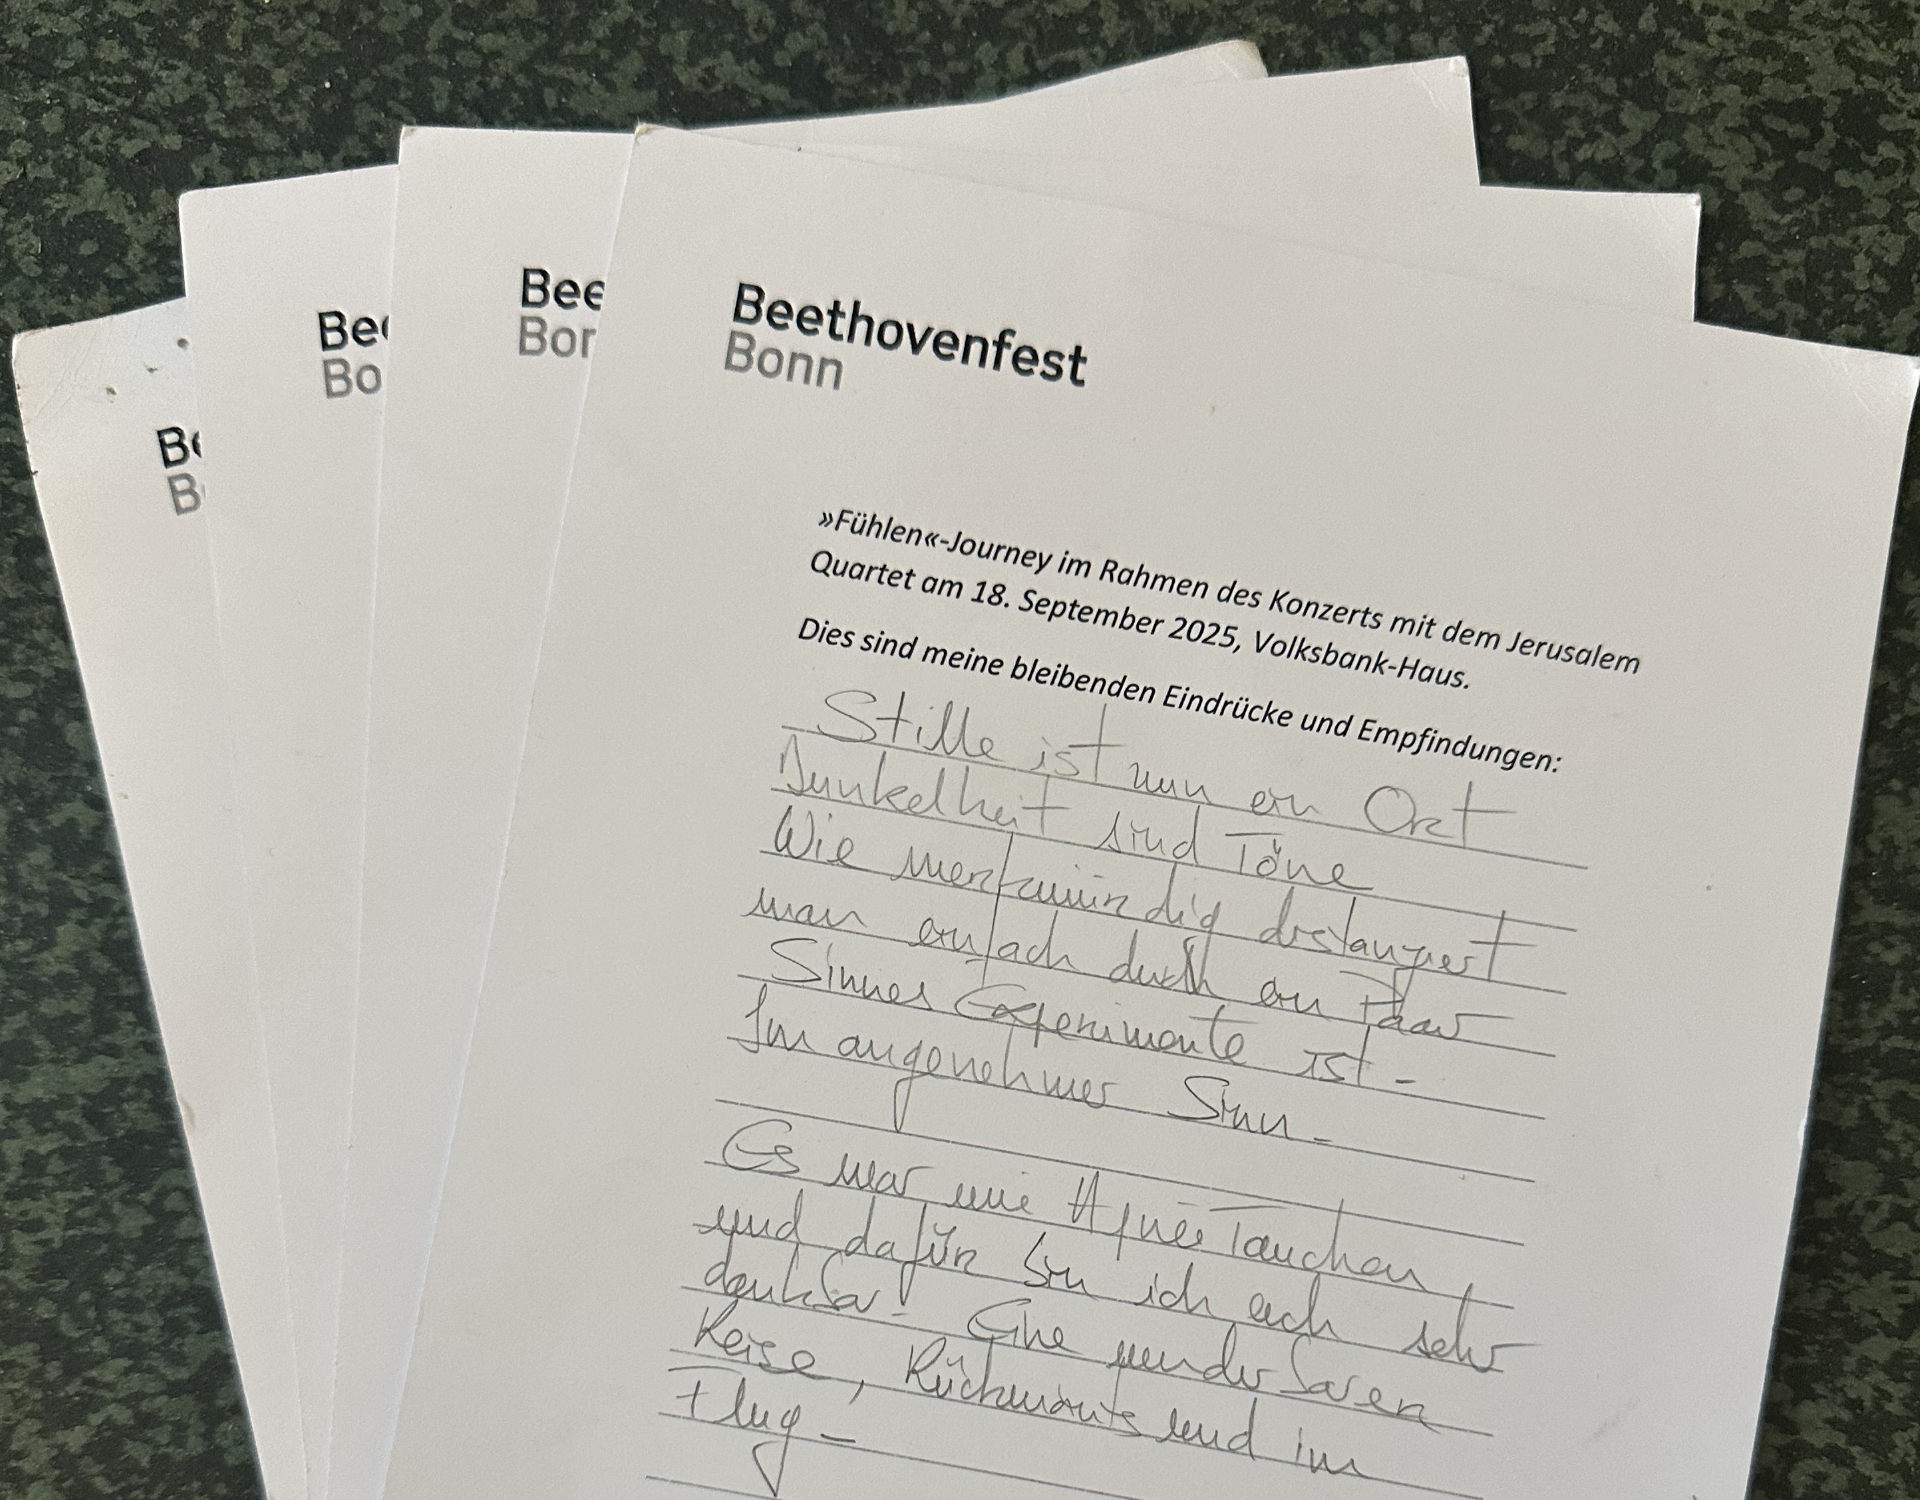 Be
B
Bee
Bo
Bee
Bon
Beethovenfest
Bonn
»Fühlen«-Journey im Rahmen des Konzerts mit dem Jerusalem
Quartet am 18. September 2025, Volksbank-Haus.
Dies sind meine bleibenden Eindrücke und Empfindungen:
Stille ist nun ein Ort
Dunkelheit sind Töne
Wie merkwürdig distanziert
man einfach durch ein Paar
Sinnes Experimente ist -
Im angenehmer Sinn -
Es war wie Tauchen,
und dafür bin ich euch sehr
dankbar - Eine wunderbaren
Reise, Rückwärts und im
Flug -